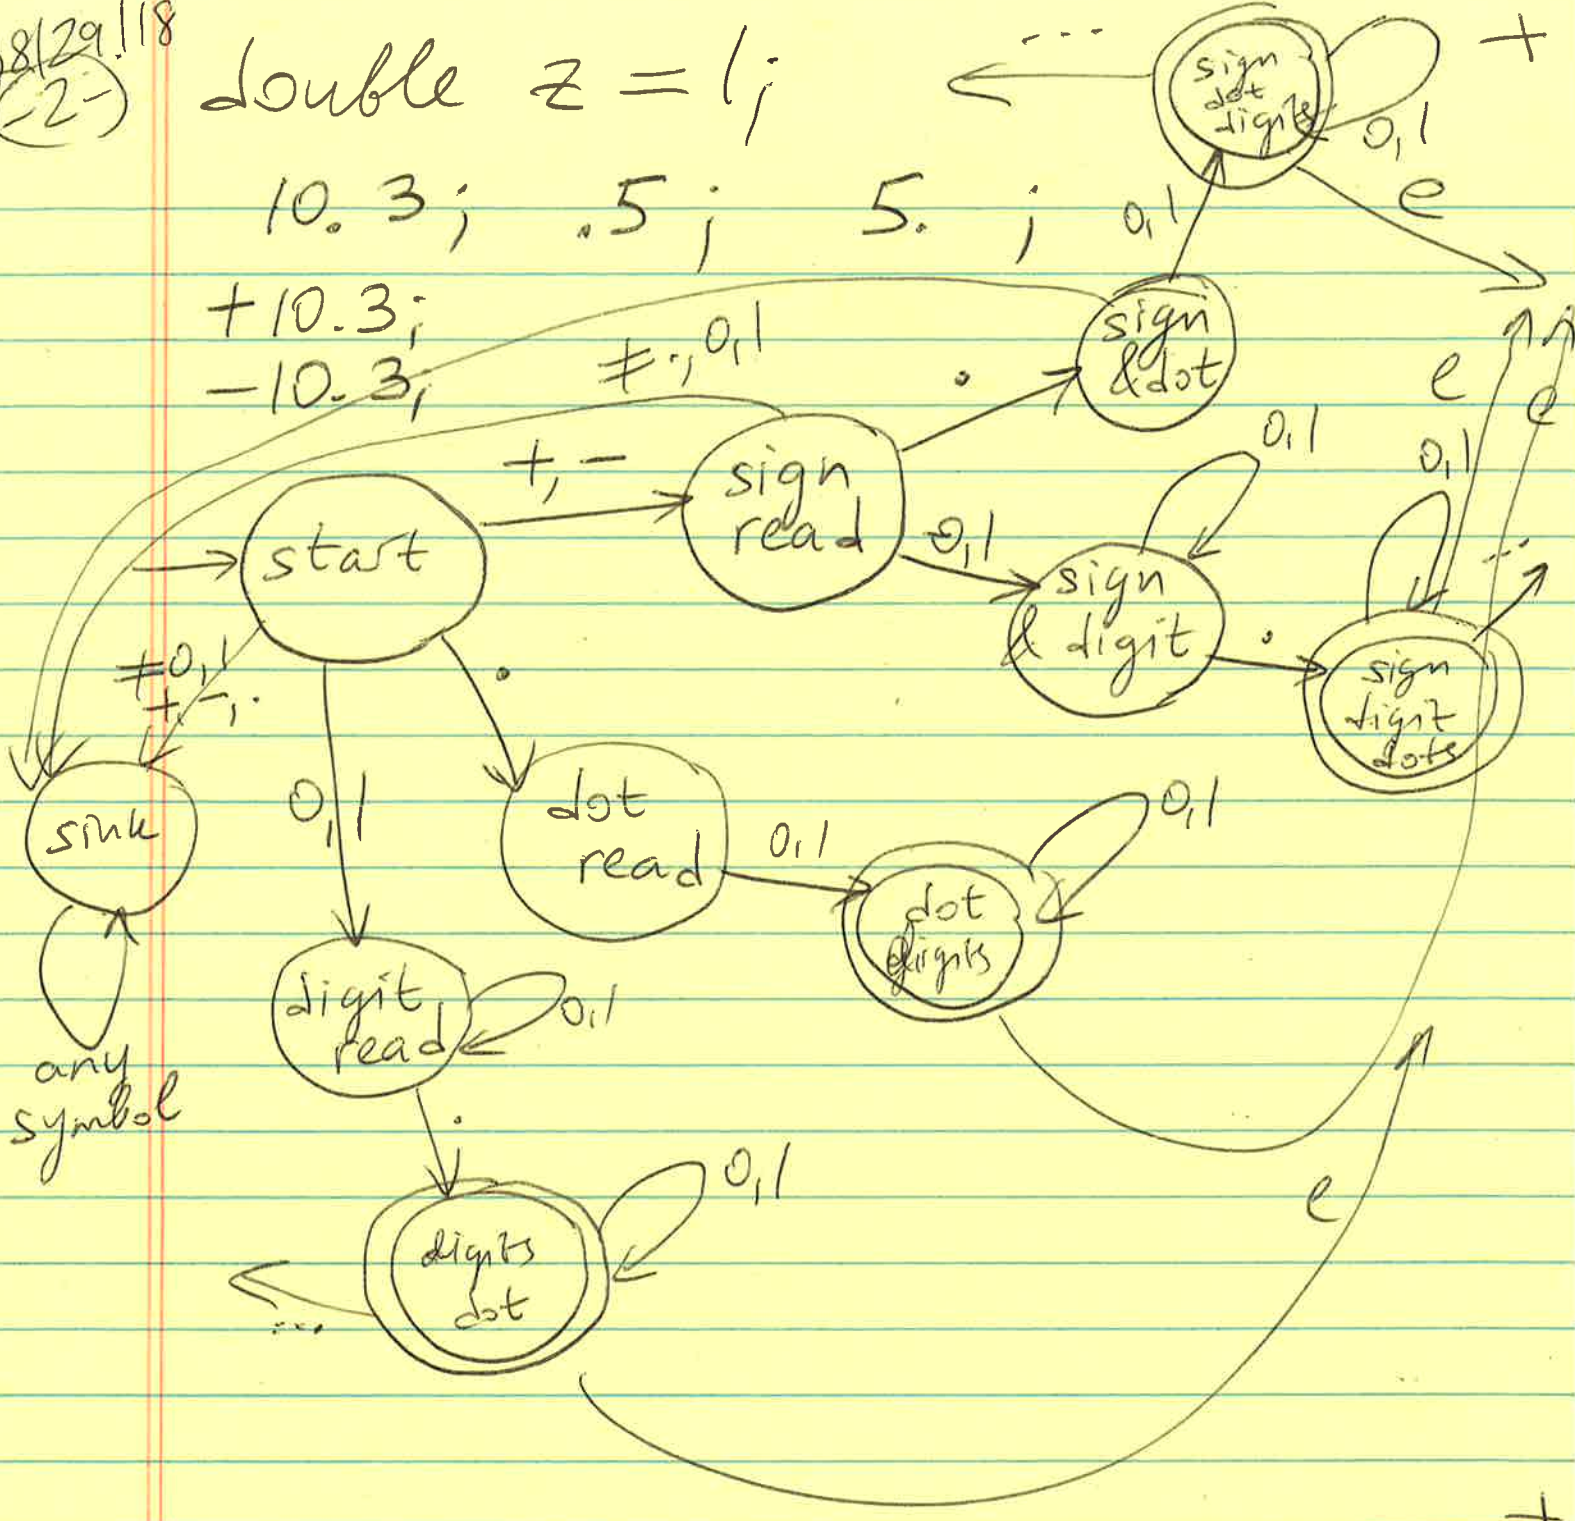 08/29/18
-2-
double z = 1;
10.3; .5; 5. ;
+10.3;
-10.3;
...
sign
dot
digits
0,1
+
e
0,1
sign
& dot
≠ ., 0,1
.
+, -
sign
read
0,1
sign
& digit
0,1
.
sign
digit
dots
0,1
e
e
...
start
≠0,1
+,-,.
sink
any
symbol
0,1
.
dot
read
0,1
dot
digits
0,1
digit
read
0,1
.
digits
dot
0,1
...
e
+